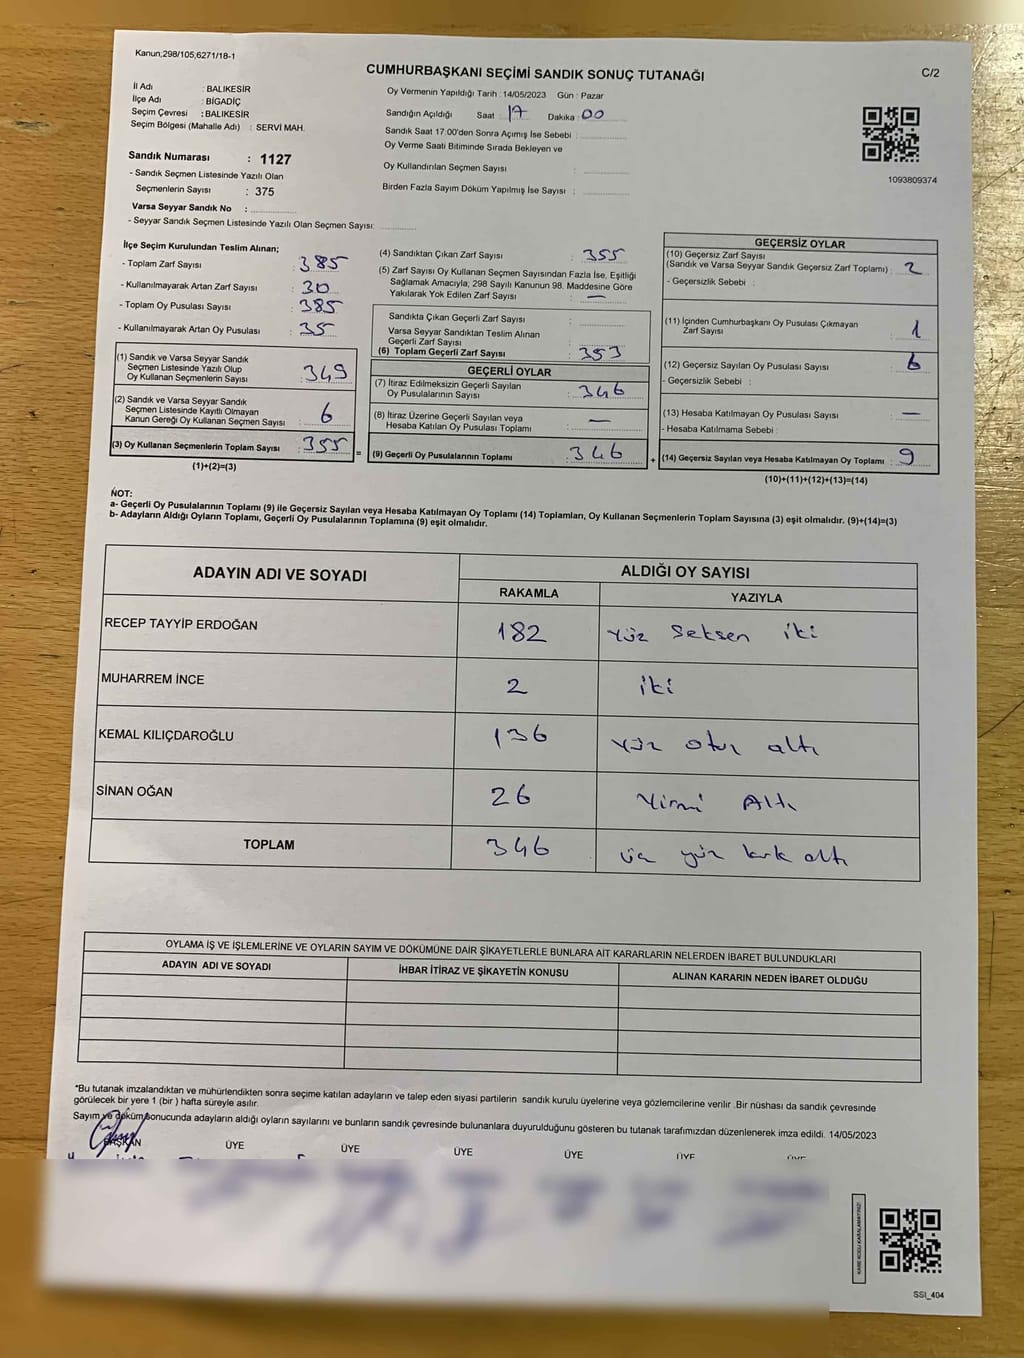 Kanun;298/105,6271/18-1
CUMHURBAŞKANI SEÇİMİ SANDIK SONUÇ TUTANAĞI
C/2
İl Adı : BALIKESİR
İlçe Adı : BİGADİÇ
Seçim Çevresi : BALIKESİR
Seçim Bölgesi (Mahalle Adı) : SERVİ MAH.
Sandık Numarası : 1127
- Sandık Seçmen Listesinde Yazılı Olan
Seçmenlerin Sayısı : 375
Varsa Seyyar Sandık No :
- Seyyar Sandık Seçmen Listesinde Yazılı Olan Seçmen Sayısı:
Oy Vermenin Yapıldığı Tarih : 14/05/2023 Gün : Pazar
Sandığın Açıldığı Saat : 17 Dakika : 00
Sandık Saat 17:00'den Sonra Açımış İse Sebebi :
Oy Verme Saati Bitiminde Sırada Bekleyen ve
Oy Kullandırılan Seçmen Sayısı :
Birden Fazla Sayım Döküm Yapılmış İse Sayısı :
1093809374
İlçe Seçim Kurulundan Teslim Alınan;
- Toplam Zarf Sayısı : 385
- Kullanılmayarak Artan Zarf Sayısı : 30
- Toplam Oy Pusulası Sayısı : 385
- Kullanılmayarak Artan Oy Pusulası : 35
(1) Sandık ve Varsa Seyyar Sandık
Seçmen Listesinde Yazılı Olup
Oy Kullanan Seçmenlerin Sayısı : 349
(2) Sandık ve Varsa Seyyar Sandık
Seçmen Listesinde Kayıtlı Olmayan
Kanun Gereği Oy Kullanan Seçmen Sayısı : 6
(3) Oy Kullanan Seçmenlerin Toplam Sayısı : 355
(1)+(2)=(3)
(4) Sandıktan Çıkan Zarf Sayısı : 355
(5) Zarf Sayısı Oy Kullanan Seçmen Sayısından Fazla İse, Eşitliği
Sağlamak Amacıyla; 298 Sayılı Kanunun 98. Maddesine Göre
Yakılarak Yok Edilen Zarf Sayısı : —
Sandıkta Çıkan Geçerli Zarf Sayısı :
Varsa Seyyar Sandıktan Teslim Alınan
Geçerli Zarf Sayısı :
(6) Toplam Geçerli Zarf Sayısı : 353
GEÇERLİ OYLAR
(7) İtiraz Edilmeksizin Geçerli Sayılan
Oy Pusulalarının Sayısı : 346
(8) İtiraz Üzerine Geçerli Sayılan veya
Hesaba Katılan Oy Pusulası Toplamı : —
= (9) Geçerli Oy Pusulalarının Toplamı : 346 +
GEÇERSİZ OYLAR
(10) Geçersiz Zarf Sayısı
(Sandık ve Varsa Seyyar Sandık Geçersiz Zarf Toplamı) : 2
- Geçersizlik Sebebi :
(11) İçinden Cumhurbaşkanı Oy Pusulası Çıkmayan
Zarf Sayısı : 1
(12) Geçersiz Sayılan Oy Pusulası Sayısı : 6
- Geçersizlik Sebebi :
(13) Hesaba Katılmayan Oy Pusulası Sayısı : —
- Hesaba Katılmama Sebebi :
(14) Geçersiz Sayılan veya Hesaba Katılmayan Oy Toplamı : 9
(10)+(11)+(12)+(13)=(14)
NOT:
a- Geçerli Oy Pusulalarının Toplamı (9) ile Geçersiz Sayılan veya Hesaba Katılmayan Oy Toplamı (14) Toplamları, Oy Kullanan Seçmenlerin Toplam Sayısına (3) eşit olmalıdır. (9)+(14)=(3)
b- Adayların Aldığı Oyların Toplamı, Geçerli Oy Pusulalarının Toplamına (9) eşit olmalıdır.
ADAYIN ADI VE SOYADI
ALDIĞI OY SAYISI
RAKAMLA YAZIYLA
RECEP TAYYİP ERDOĞAN 182 Yüz Seksen iki
MUHARREM İNCE 2 iki
KEMAL KILIÇDAROĞLU 136 Yüz otuz altı
SİNAN OĞAN 26 Yirmi Altı
TOPLAM 346 üç yüz kırk altı
OYLAMA İŞ VE İŞLEMLERİNE VE OYLARIN SAYIM VE DÖKÜMÜNE DAİR ŞİKAYETLERLE BUNLARA AİT KARARLARIN NELERDEN İBARET BULUNDUKLARI
ADAYIN ADI VE SOYADI İHBAR İTİRAZ VE ŞİKAYETİN KONUSU ALINAN KARARIN NEDEN İBARET OLDUĞU
*Bu tutanak imzalandıktan ve mühürlendikten sonra seçime katılan adayların ve talep eden siyasi partilerin sandık kurulu üyelerine veya gözlemcilerine verilir .Bir nüshası da sandık çevresinde
görülecek bir yere 1 (bir ) hafta süreyle asılır.
Sayım ve döküm sonucunda adayların aldığı oyların sayılarını ve bunların sandık çevresinde bulunanlara duyurulduğunu gösteren bu tutanak tarafımızdan düzenlenerek imza edildi. 14/05/2023
BAŞKAN ÜYE ÜYE ÜYE ÜYE ÜYE ÜYE
KARE KODU KARALAMAYINIZ!
SSI_404